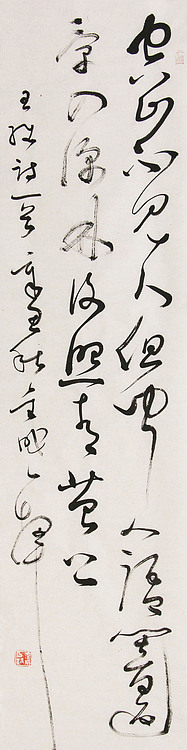 空山不見人但聞人語響返
景入深林復照青苔上
王維詩一首辛丑秋